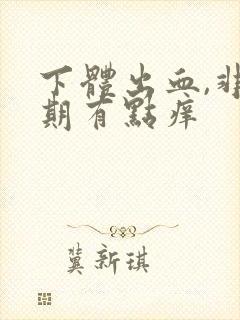 下體出血,非
期有點痒
龔新琪